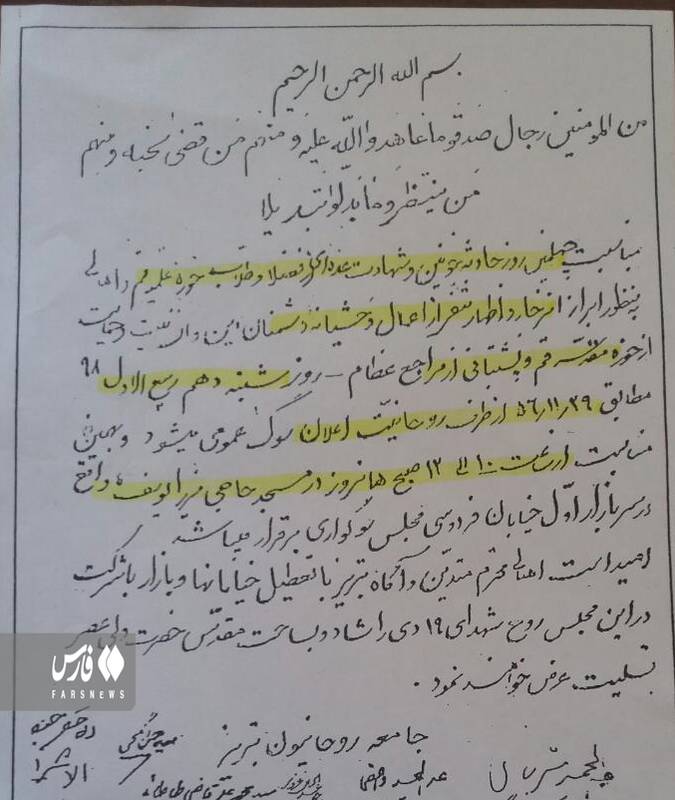 بسم الله الرحمن الرحیم
من المومنین رجال صدقوما عاهدوا الله علیه و منهم من قضی نحبه و منهم
من ینتظر و ما بدلوا تبدیلا
بمناسبت چهلمین روز حادثه خونین و شهادت عده‌ای از فضلا و طلاب حوزه علمیه قم و اهالی
بمنظور ابراز انزجار و اظهار تنفر از اعمال وحشیانه دشمنان این و حمایت
از حوزه مقدسه قم و پشتبانی از مراجع عظام – روز شنبه دهم ربیع الاول ۹۸
مطابق ۵۶٫۱۱٫۲۹ از طرف روحانیت اعلان سوگ عمومی میشود و بهمین
مناسبت از ساعت ۱۰ الی ۱۲ صبح همانروز در مسجد حاجی میرزا یوسف واقع
در سر بازار اول خیابان فردوسی مجلس سوگواری برقرار میباشد
امید است اهالی محترم متدین و آگاه تبریز با تعطیل خیابانها و بازار با شرکت
در این مجلس روح شهدای ۱۹ دی را شاد و بساحت مقدس حضرت ولی عصر
تسلیت عرض خواهند نمود .
جامعه روحانیون تبریز
فارس
FARSNEWS